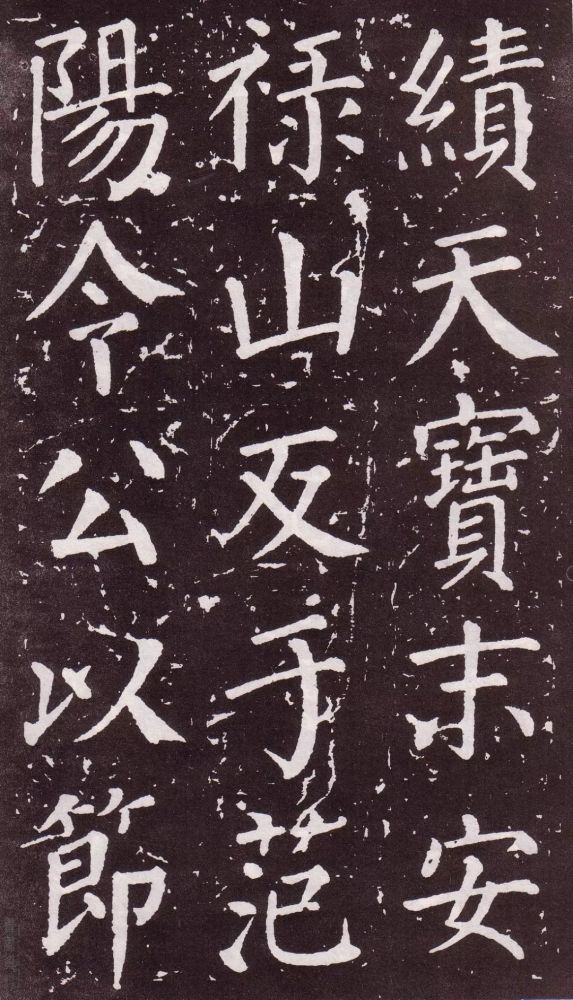 績天寶末安
禄山反于范
陽令公以節